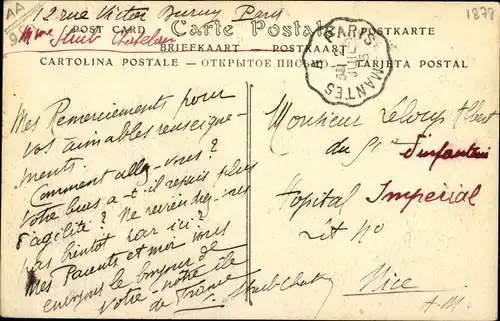 12 rue Victor Duruy Paris
1878
AA
POST CARD Carte Postale POSTKARTE
Mme
BRIEFKAART — POSTKAART
CARTOLINA POSTALE — ОТКРЫТОЕ ПИСЬМО — TARJETA POSTAL
PARIS
MANTES
Mes Remerciements pour
vos aimables renseigne-
ments.
Comment allez-vous?
Votre bras a-t-il repris plus
d'agilité? Ne reviendrez-vous
pas bientôt par ici?
Mes Parents et moi vous
envoyons le bonjour de
Votre notre île
de France.
Monsieur Leloup Albert
du 91e d'infanterie
Hopital Impérial
Lit No
Nice
A-M.